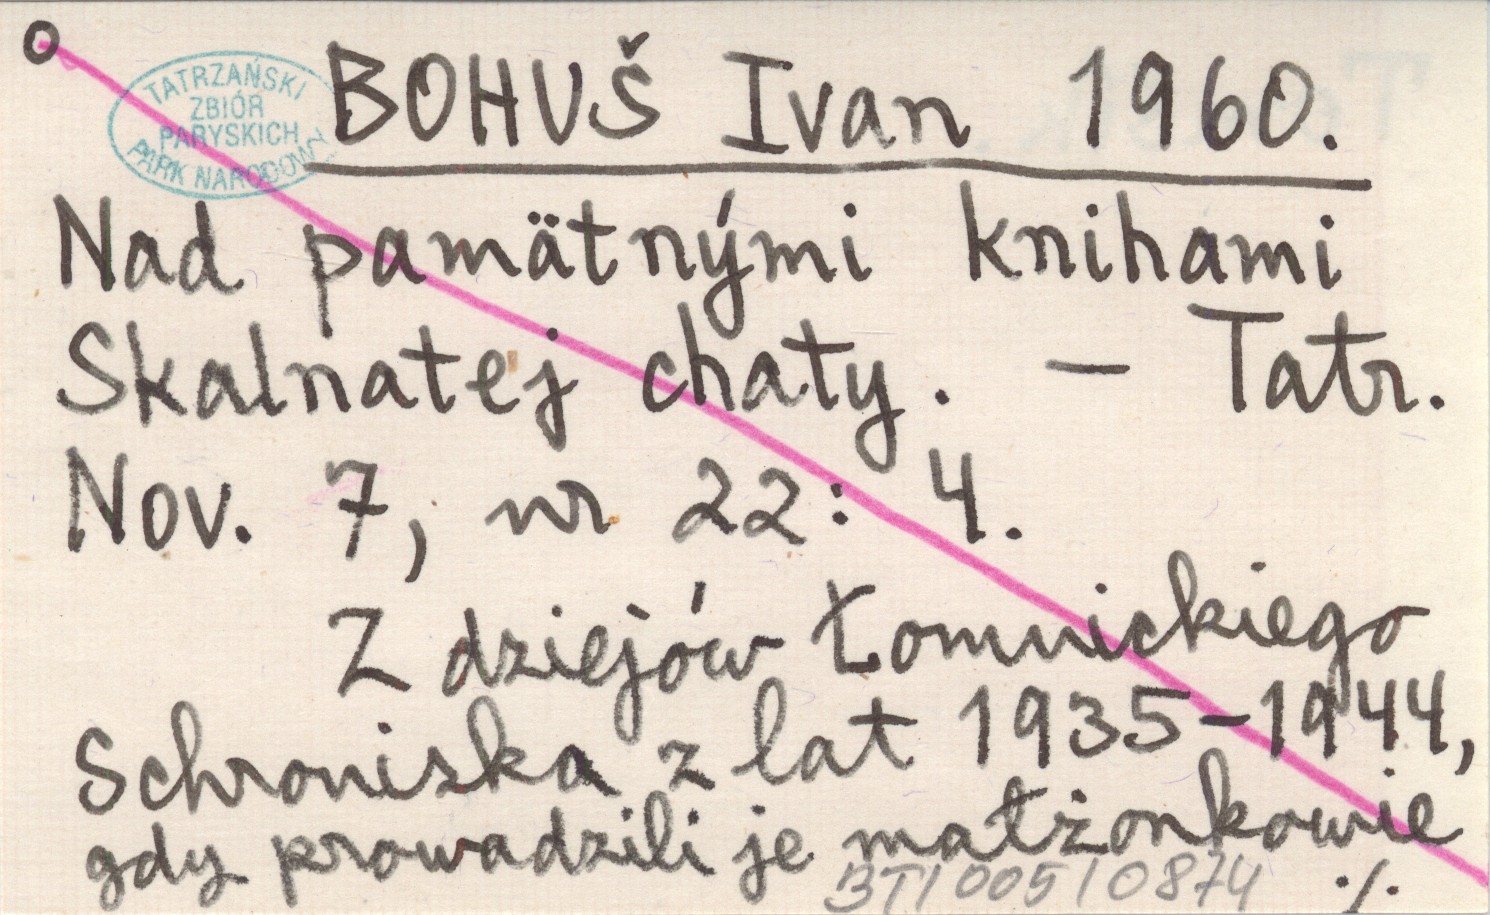 o
TATRZAŃSKI
ZBIÓR
PARYSKICH
PARK NARODOWY
BOHUŠ Ivan 1960.
Nad pamätnými knihami
Skalnatej chaty. – Tatr.
Nov. 7, nr 22: 4.
Z dziejów Łomnickiego
Schroniska z lat 1935-1944,
gdy prowadzili je małżonkowie
BT100510874 ./.